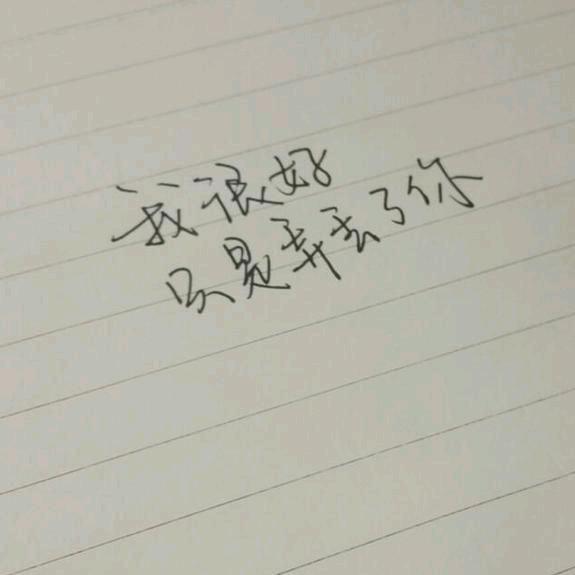 我很好
只是弄丢了你